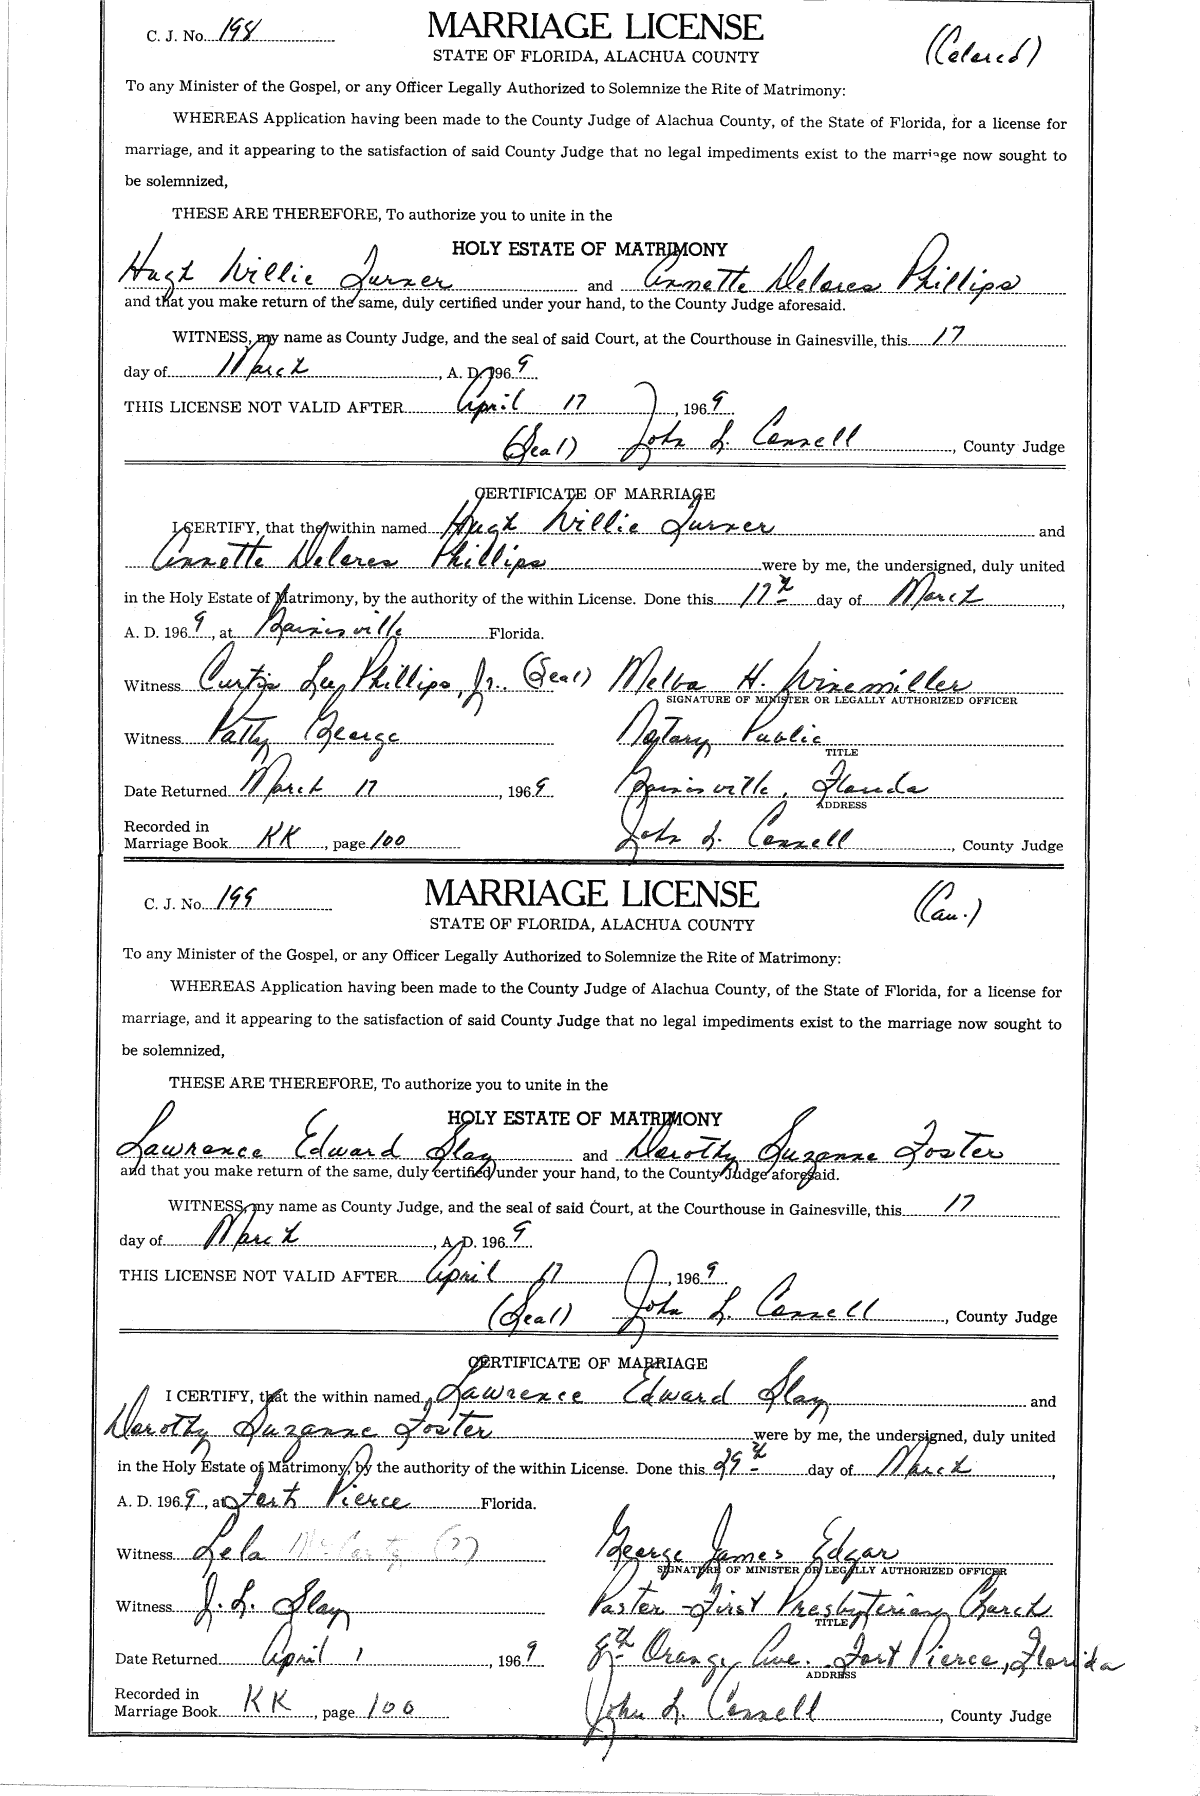 C. J. No. 198
MARRIAGE LICENSE
(Colored)
STATE OF FLORIDA, ALACHUA COUNTY
To any Minister of the Gospel, or any Officer Legally Authorized to Solemnize the Rite of Matrimony:
WHEREAS Application having been made to the County Judge of Alachua County, of the State of Florida, for a license for
marriage, and it appearing to the satisfaction of said County Judge that no legal impediments exist to the marriage now sought to
be solemnized,
THESE ARE THEREFORE, To authorize you to unite in the
HOLY ESTATE OF MATRIMONY
Hugh Willie Turner and Annette Delores Phillips
and that you make return of the same, duly certified under your hand, to the County Judge aforesaid.
WITNESS, my name as County Judge, and the seal of said Court, at the Courthouse in Gainesville, this 17
day of March, A. D. 1969
THIS LICENSE NOT VALID AFTER April 17, 1969
(Seal) John L. Connell, County Judge
CERTIFICATE OF MARRIAGE
I CERTIFY, that the within named Hugh Willie Turner and
Annette Delores Phillips were by me, the undersigned, duly united
in the Holy Estate of Matrimony, by the authority of the within License. Done this 17th day of March,
A. D. 1969, at Gainesville Florida.
Witness Curtis Lee Phillips, Jr. (Seal) Melba H. Winemiller
SIGNATURE OF MINISTER OR LEGALLY AUTHORIZED OFFICER
Witness Patty George Notary Public
TITLE
Date Returned March 17, 1969 Gainesville, Florida
ADDRESS
Recorded in
Marriage Book KK, page 100 John L. Connell, County Judge
C. J. No. 199
MARRIAGE LICENSE
(Cau.)
STATE OF FLORIDA, ALACHUA COUNTY
To any Minister of the Gospel, or any Officer Legally Authorized to Solemnize the Rite of Matrimony:
WHEREAS Application having been made to the County Judge of Alachua County, of the State of Florida, for a license for
marriage, and it appearing to the satisfaction of said County Judge that no legal impediments exist to the marriage now sought to
be solemnized,
THESE ARE THEREFORE, To authorize you to unite in the
HOLY ESTATE OF MATRIMONY
Lawrence Edward Slay and Dorothy Suzanne Foster
and that you make return of the same, duly certified under your hand, to the County Judge aforesaid.
WITNESS, my name as County Judge, and the seal of said Court, at the Courthouse in Gainesville, this 17
day of March, A. D. 1969
THIS LICENSE NOT VALID AFTER April 17, 1969
(Seal) John L. Connell, County Judge
CERTIFICATE OF MARRIAGE
I CERTIFY, that the within named Lawrence Edward Slay and
Dorothy Suzanne Foster were by me, the undersigned, duly united
in the Holy Estate of Matrimony, by the authority of the within License. Done this 29th day of March,
A. D. 1969, at Fort Pierce Florida.
Witness Lela McCarty (?) George James Edgar
SIGNATURE OF MINISTER OR LEGALLY AUTHORIZED OFFICER
Witness J. L. Slay Pastor - First Presbyterian Church
TITLE
Date Returned April 1, 1969 8th Orange Ave. Fort Pierce, Florida
ADDRESS
Recorded in
Marriage Book KK, page 100 John L. Connell, County Judge